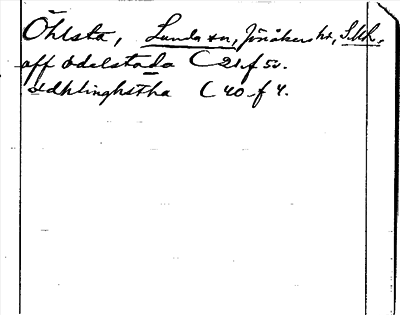 Öhlsta, Lunda sn, Jönåkers hd, S.ml.
off Odelstada C 21 f 50.
œdhlinghstha C 40 f 4.